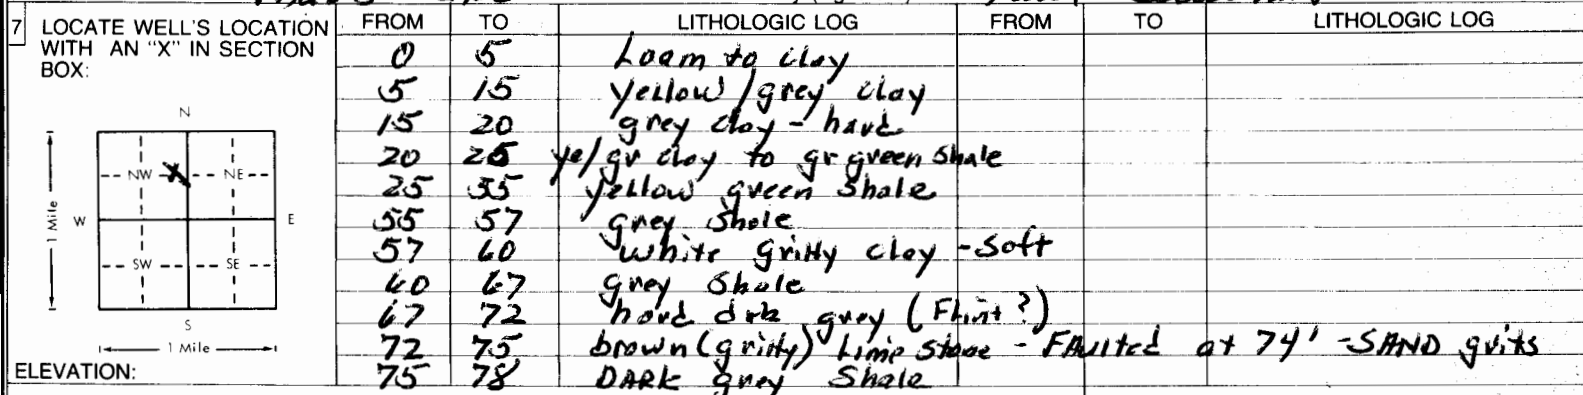 7 LOCATE WELL'S LOCATION WITH AN "X" IN SECTION BOX:
FROM TO LITHOLOGIC LOG FROM TO LITHOLOGIC LOG
0 5 Loam to clay
5 15 yellow/grey clay
15 20 grey clay - hard
20 25 ye/gr clay to gr green Shale
25 55 yellow green Shale
55 57 grey Shale
57 60 white gritty clay - soft
60 67 grey Shale
67 72 hard drk grey (Flint?)
72 75 brown (gritty) Lime stone - FAulted at 74' - SAND grits
75 78 DARK grey Shale
N
NW X NE
W E
1 Mile
SW SE
S
1 Mile
ELEVATION: